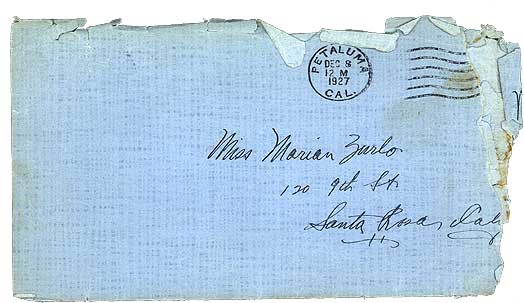 PETALUMA
DEC 8
12 M
1927
CAL.
Miss Marian Zurlo
120 9th St
Santa Rosa, Cal